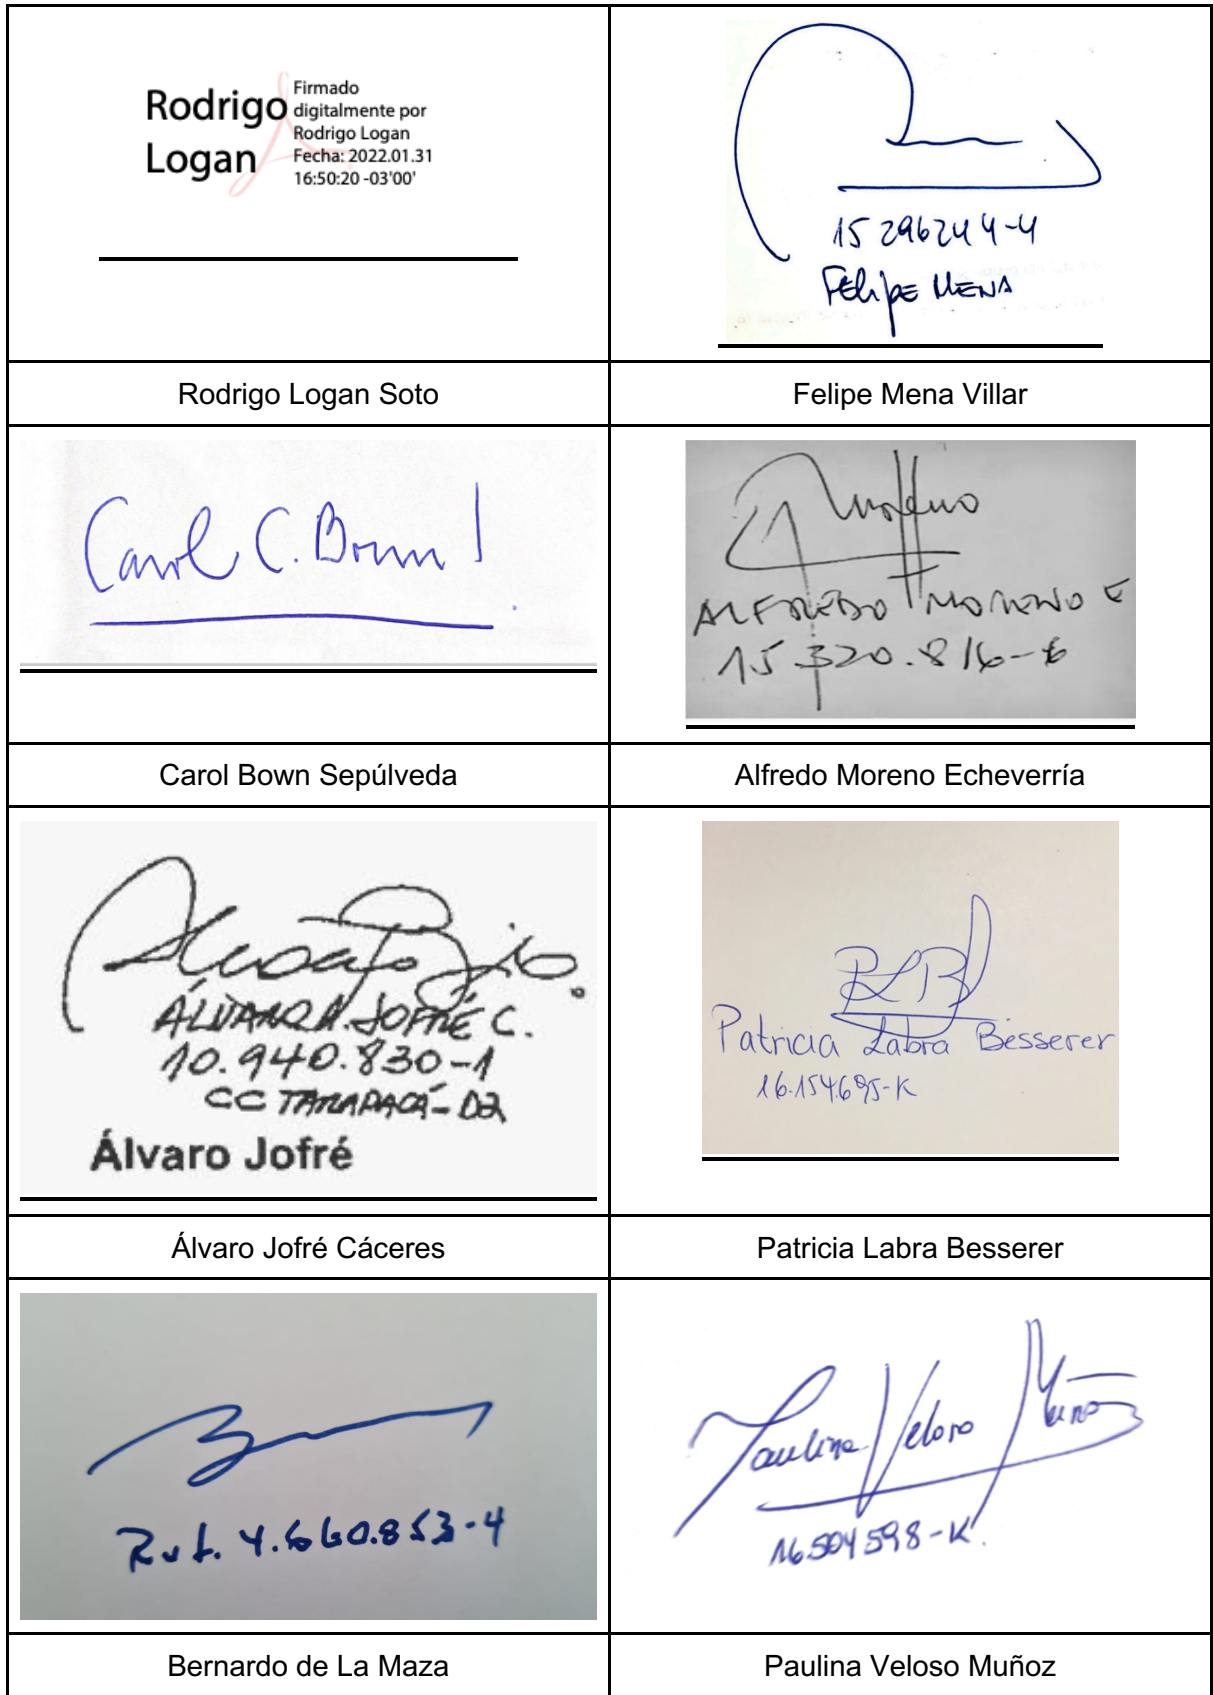 Rodrigo
Logan
Firmado
digitalmente por
Rodrigo Logan
Fecha: 2022.01.31
16:50:20 -03'00'
15296244-4
Felipe MENA
Rodrigo Logan Soto
Felipe Mena Villar
Carol C. Bown
Moreno
ALFREDO MORENO E
15.320.816-6
Carol Bown Sepúlveda
Alfredo Moreno Echeverría
ÁLVARO A. JOFRÉ C.
10.940.830-1
CC TARAPACÁ-D2
Álvaro Jofré
PLB
Patricia Labra Besserer
16.154.695-K
Álvaro Jofré Cáceres
Patricia Labra Besserer
Rut. 4.660.853-4
Paulina Veloso Muñoz
16504598-K.
Bernardo de La Maza
Paulina Veloso Muñoz